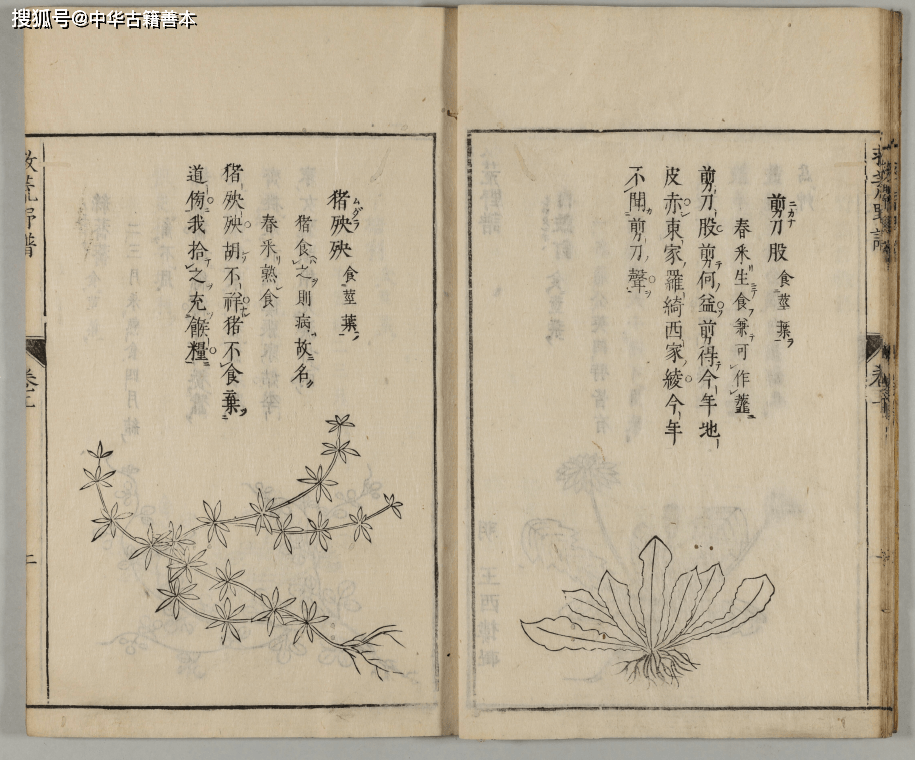 搜狐号@中华古籍善本
剪刀股 食莖葉
春釆生食兼可作虀
剪刀股剪何益剪得今年地
皮赤東家羅綺西家綾今年
不聞剪刀聲
猪殃殃 食莖葉
猪食之則病故名
春釆熟食
猪殃殃胡不祥猪不食葉
道傍我拾之充餱糧
救荒野譜